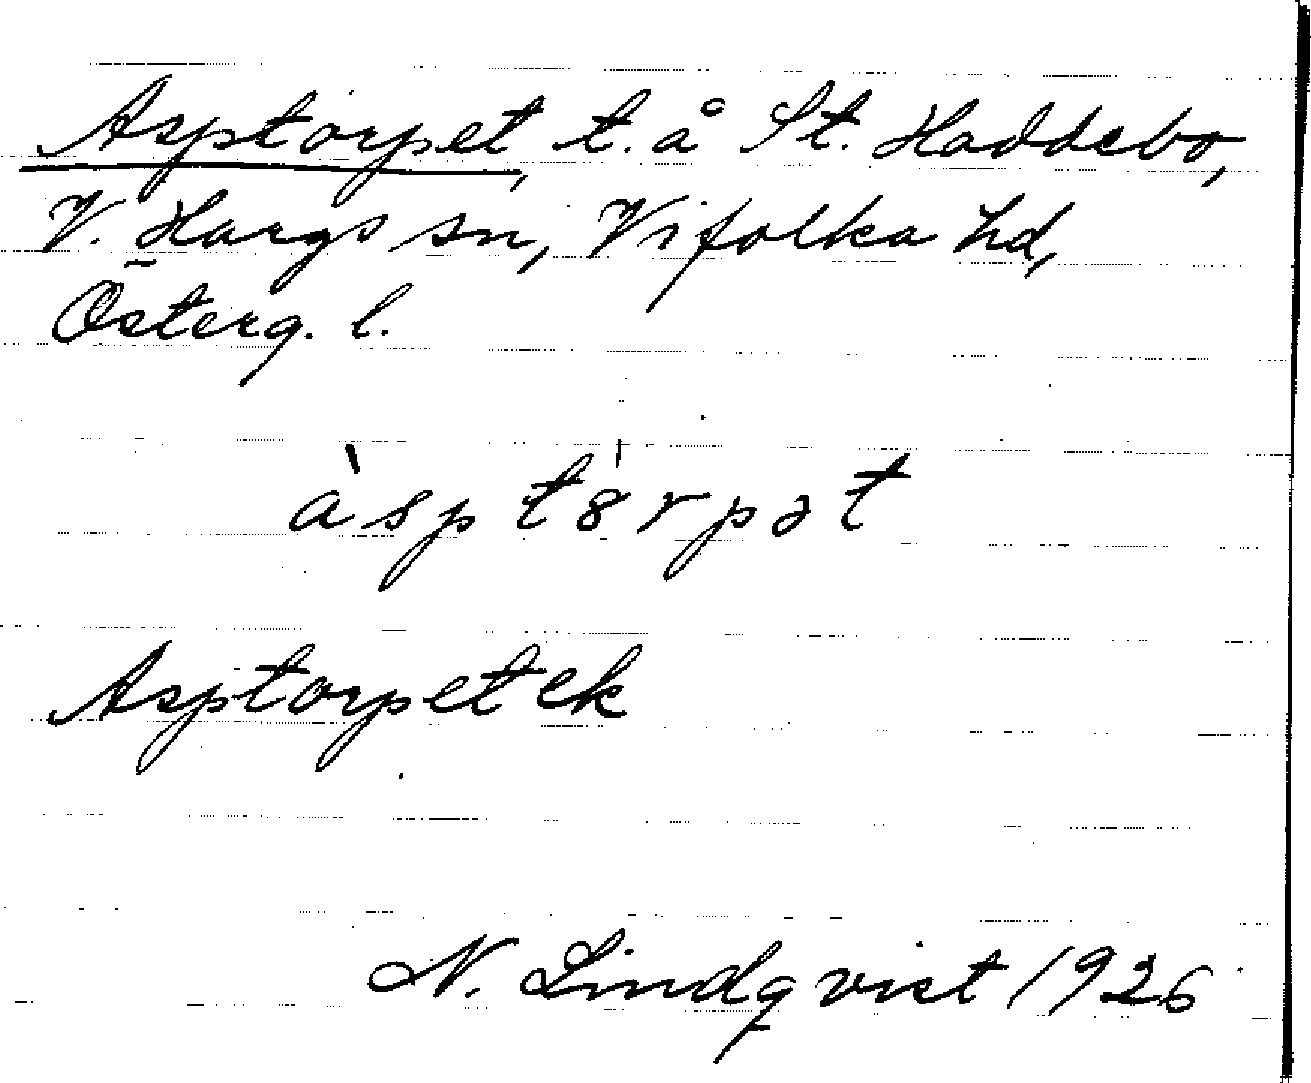 Asptorpet, t. å St. Haddebo,
V. Hargs sn, Vifolka hd,
Österg. l.
àsptȣ́rpət
Asptorpet ek
N. Lindqvist 1926